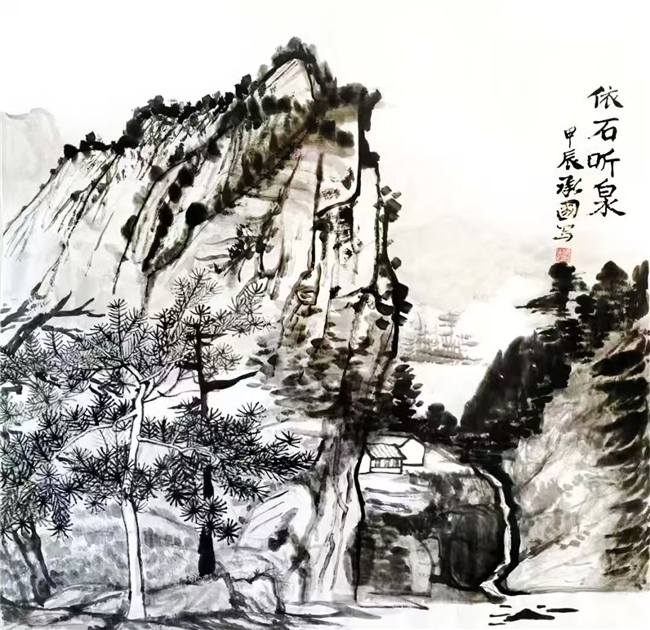 依石听泉
甲辰承国写